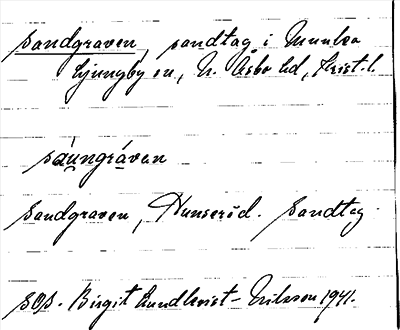 Sandgraven, sandtag i Munka
Ljungby sn, N. Åsbo hd, Krist. l.
sáungrávan
Sandgraven, Hunseröd. Sandtag.
SOS. Birgit Lundkvist-Eriksson 1941.